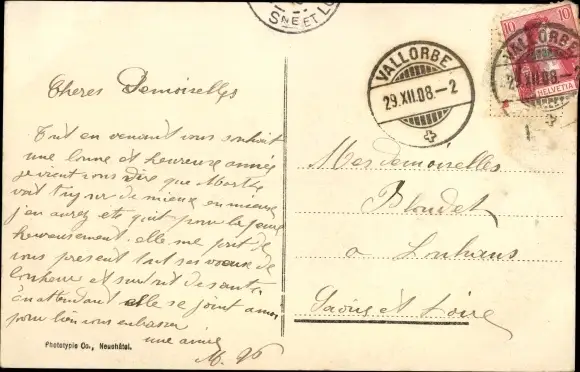 SNE ET LO
10 10
HELVETIA
VALLORBE
29.XII.08.-2
VALLORBE
29.XII.08.-2
Cheres Demoiselles
Tout en venant vous souhait
une bonne et heureuse année
je viens vous dire que Marthe
va de mieux en mieux
heureusement. elle me joint de
vous present tout ses voeux de
bonheur et surtout de santé
En attendant elle se joint a moi
pour bien vous embrasser
une amie
Mesdemoiselles
Blondet
a Louhans
Saône et Loire
Phototypie Co., Neuchâtel.